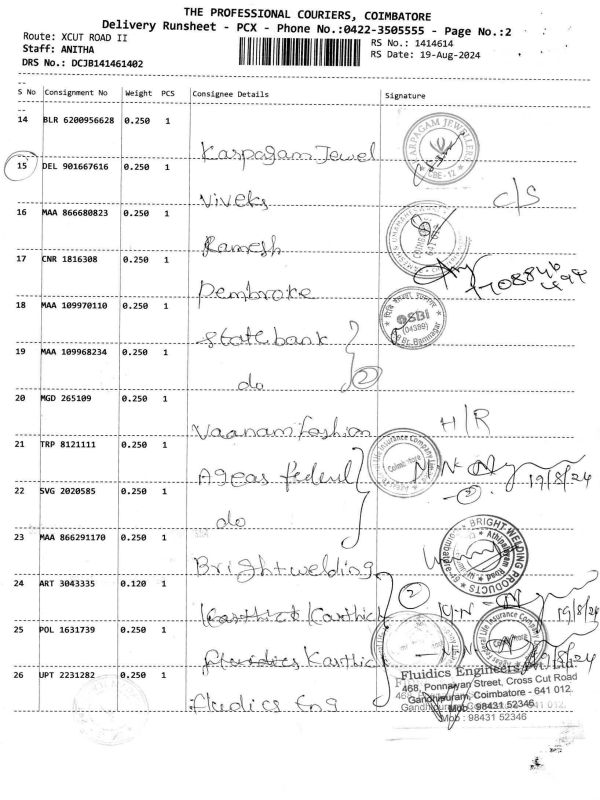 THE PROFESSIONAL COURIERS, COIMBATORE
Delivery Runsheet - PCX - Phone No.:0422-3505555 - Page No.:2
Route: XCUT ROAD II
RS No.: 1414614
Staff: ANITHA
RS Date: 19-Aug-2024
DRS No.: DCJB141461402
S No Consignment No Weight PCS Consignee Details Signature
14 BLR 6200956628 0.250 1
Karpagam Jewel
KARPAGAM JEWELLERS
CBE - 12
15 DEL 901667616 0.250 1
Viveks
C/S
16 MAA 866680823 0.250 1
Ramesh
641 012
17 CNR 1816308 0.250 1
Pembroke
18 MAA 109970110 0.250 1
State bank
SBI
(04389)
19 MAA 109968234 0.250 1
do
2
20 MGD 265109 0.250 1
Vaanam fashion
H/R
21 TRP 8121111 0.250 1
Ageas federal
Life Insurance Company
Coimbatore
19/8/24
2
22 SVG 2020585 0.250 1
do
23 MAA 866291170 0.250 1
Bright welding
BRIGHT WELDING PRODUCTS
Athipalayam Road
24 ART 3043335 0.120 1
Karthick Karthick
2
19/8/24
25 POL 1631739 0.250 1
Fluidics Karthick
Federal Life Insurance Company
Coimbatore
26 UPT 2231282 0.250 1
Fludics Eng
Fluidics Engineers Pvt. Ltd.
468, Ponnaiyan Street, Cross Cut Road
Gandhipuram, Coimbatore - 641 012.
Mob : 98431 52346